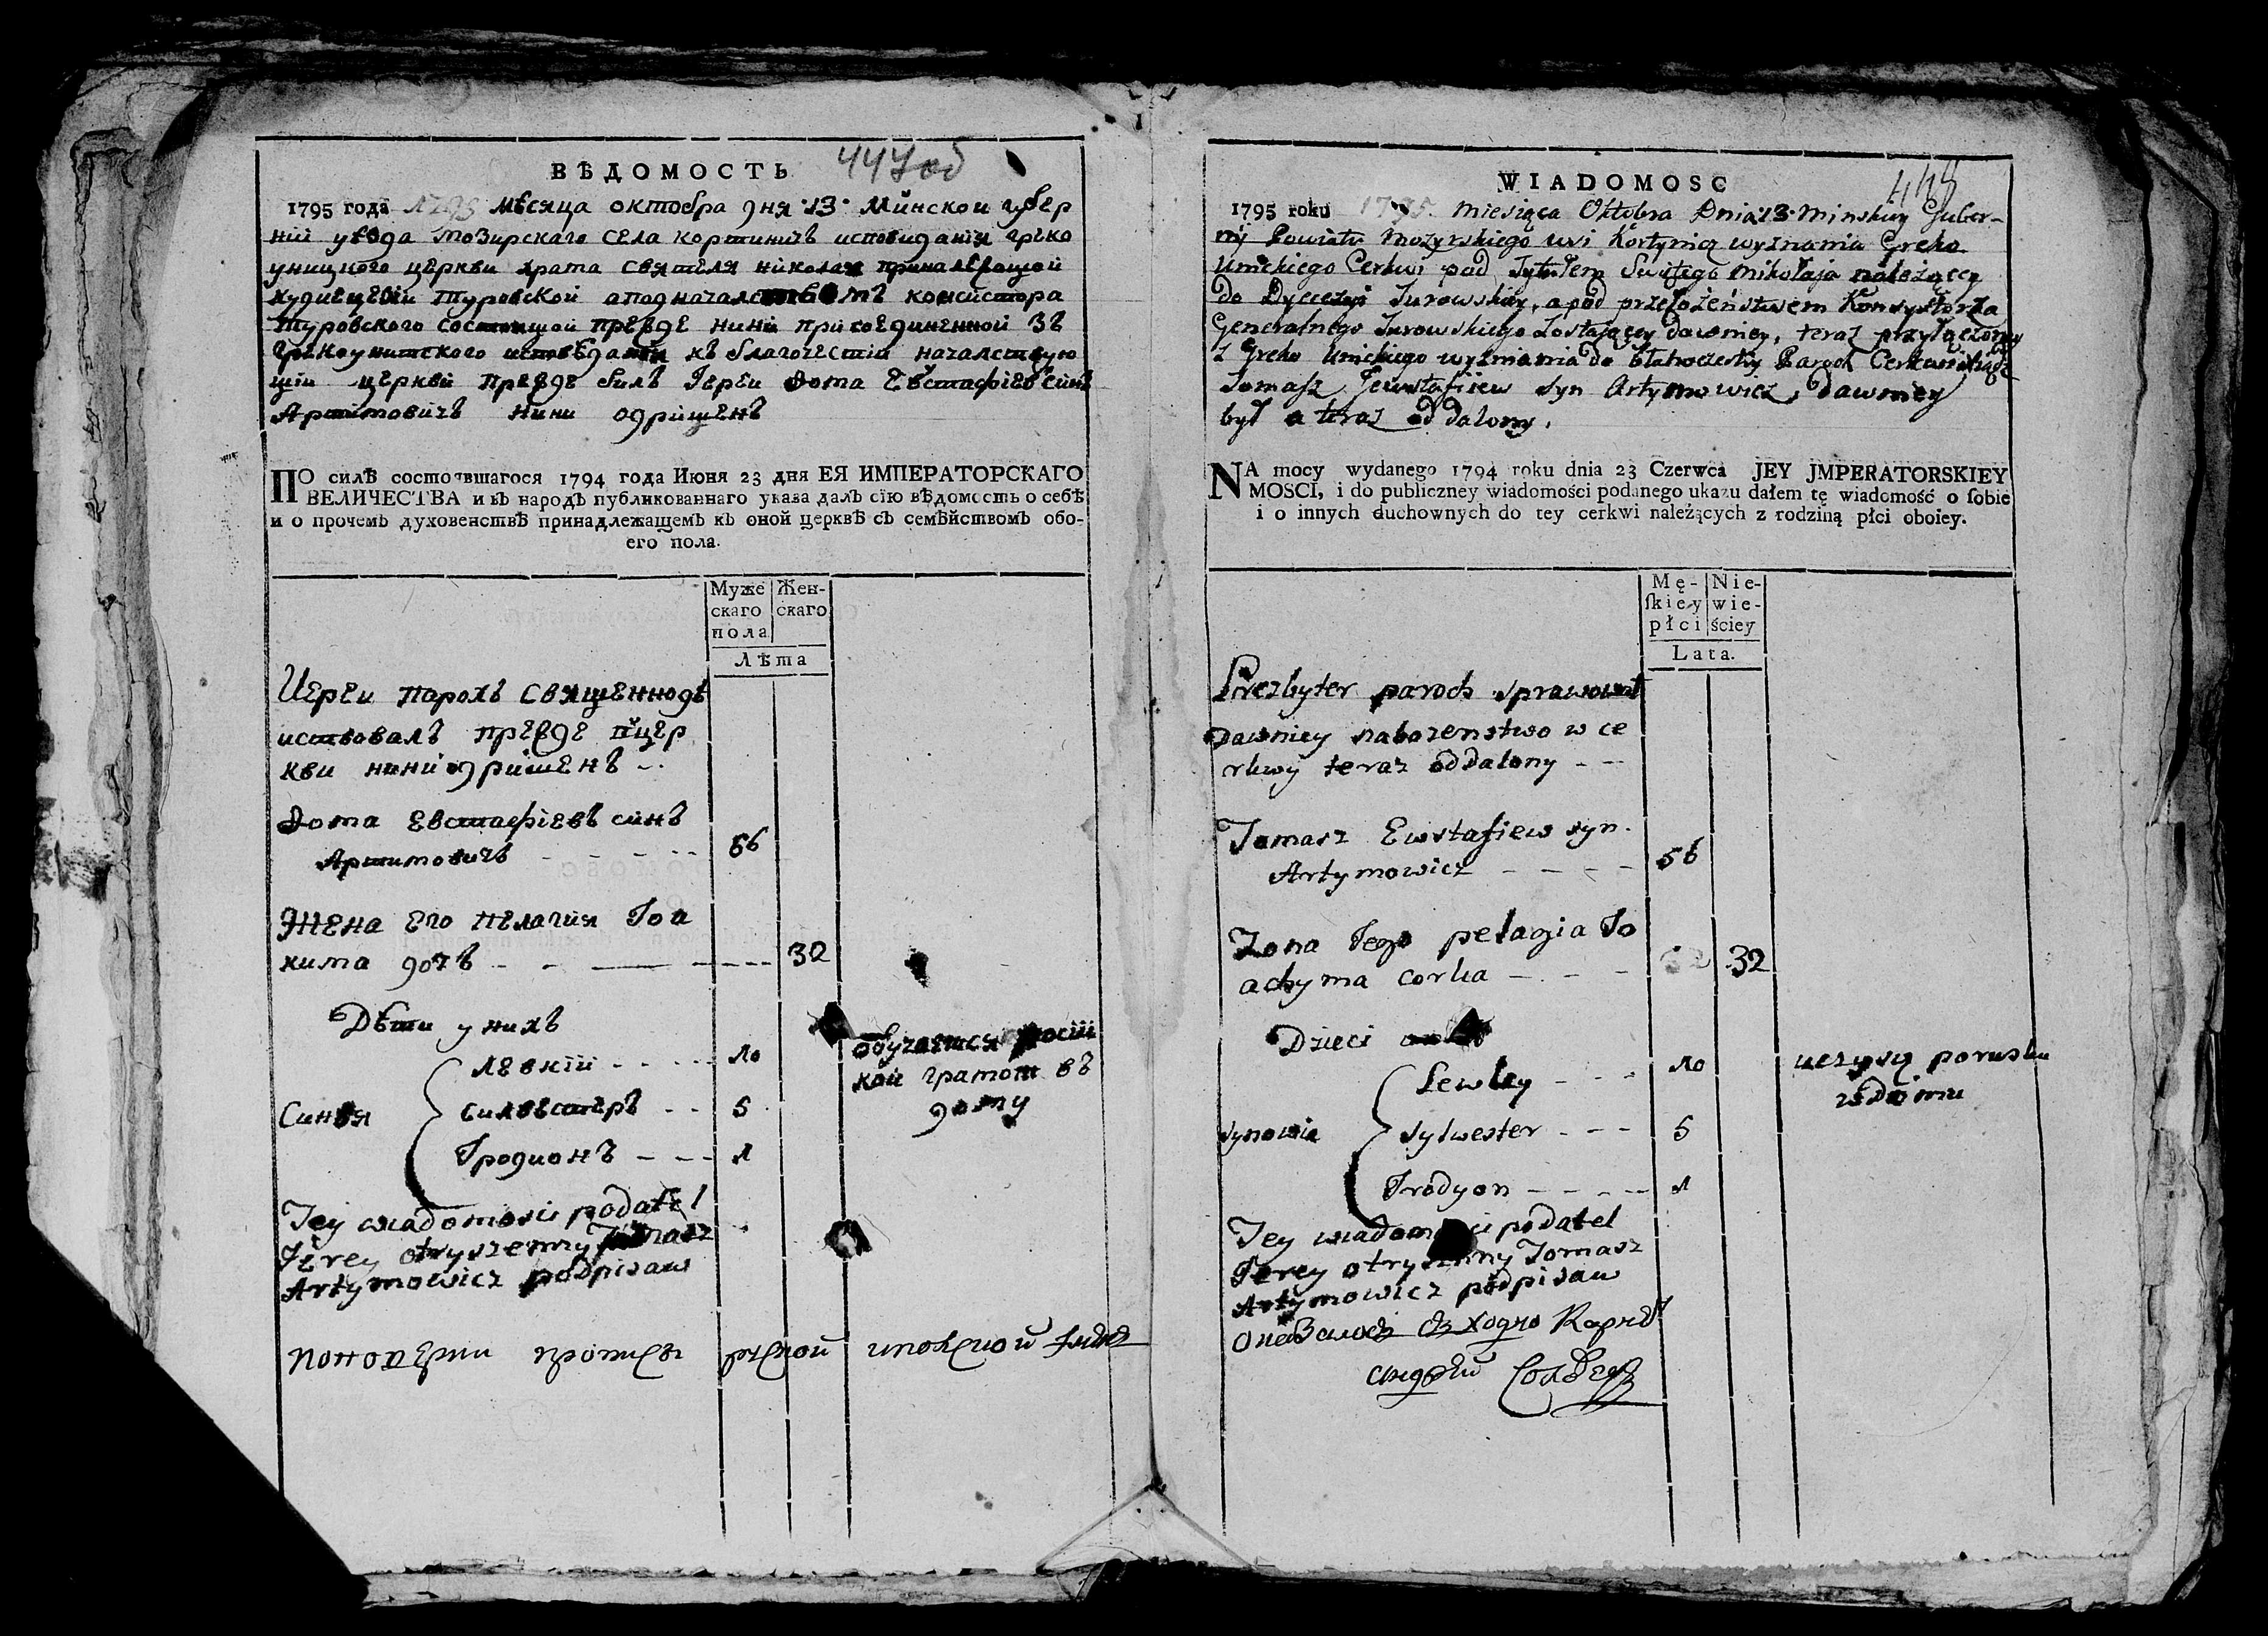 ВѢДОМОСТЬ
447об
1795 года 1795 мѣсяца октобра дня 13 Минской губер
ніи уезда Мозирскаго села Кортиничъ исповиданія греко
уницкого церкви храма святителя Николая приналежащой
к диецезіи Туровской а под началством консистора
Туровского состоящой прежде нини присоединенной зъ
грекоунитского исповѣданія къ благочестію началствую
щій церкви прежде билъ Іереи Фома Евстафіевъ синъ
Артимовичъ нини одришенъ
ПО силѣ состоявшагося 1794 года Июня 23 дня ЕЯ ИМПЕРАТОРСКАГО
ВЕЛИЧЕСТВА и въ народъ публикованнаго указа далъ сію вѣдомость о себѣ
и о прочемъ духовенствѣ принадлежащемъ къ оной церквѣ съ семѣйствомъ обо-
его пола.
Муже Жен-
скаго скаго
пола
Лѣта
Иереи парохъ священнодѣ
иствовалъ прежде в цер
кви нини одришенъ
Фома Евстафіевъ синъ
Артимовичъ - - - - 56
Жена его Пелагия Іоа
кима дочъ - - - 32
Дѣти у нихъ
Левкій - - - 10 обучается росій
кой грамот въ
Синвя Силвестеръ - - 5 дому
Іродионъ - - - 1
Tey wiadomosci podatel
Jerey otryszenny Tomasz
Artymowicz podpisaw
WIADOMOSC
448
1795 roku 1795. miesiąca Oktobra Dnia 13 minskiey Guber-
nij Powiatu Mozyrskiego wsi Kortynicz wyznania Greko
Unickiego Cerkwi pod Tytułem Swiętego Mikołaja należący
do Dyecezyi Turowskiey, a pod przełożeństwem Konsystorza
Generalnego Turowskiego zostającey dawniey, teraz przyłączoney
z Greko Unickiego wyznania do błahoczestiy Paroch Cerkwi Xiądz
Tomasz Jewstafiiew syn Artymowicz, dawniey
był a teraz oddalony.
NA mocy wydanego 1794 roku dnia 23 Czerwca JEY JMPERATORSKIEY
MOSCI, i do publiczney wiadomości podanego ukazu dałem tę wiadomość o ſobie
i o innych duchownych do tey cerkwi należących z rodziną płci oboiey.
Mę- Nie-
ſkiey wie-
płci ściey
Lata.
Prezbyter paroch sprawował
dawniey nabozenstwo w ce
rkwy teraz oddalony - -
Tomasz Ewstafiew syn.
Artymowicz - - - - 56
Zona Jego pelagia Jo
achyma corka - - - 32
Dzieci
Lewkey - - - 10 uczysię porusku
w Domu
synowie Sylwester - - - 5
Irodyon - - - - 1
Tey wiadomosci podatel
Jerey otryszenny Tomasz
Artymowicz podpisaw